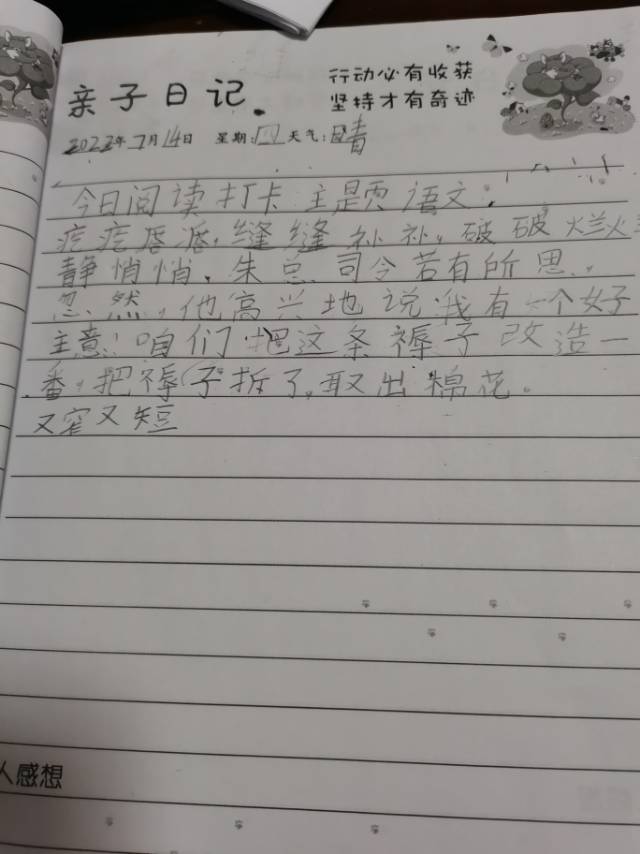 行动必有收获
亲子日记
坚持才有奇迹
2022年7月14日 星期:四 天气:晴
今日阅读打卡 主题 语文:
疙疙唇唇,缝缝补补,破破烂烂
静悄悄,朱总司令若有所思,
忽然,他高兴地说:我有一个好
主意!咱们把这条褥子改造一
番,把褥子拆了,取出棉花。
又窄又短
人感想